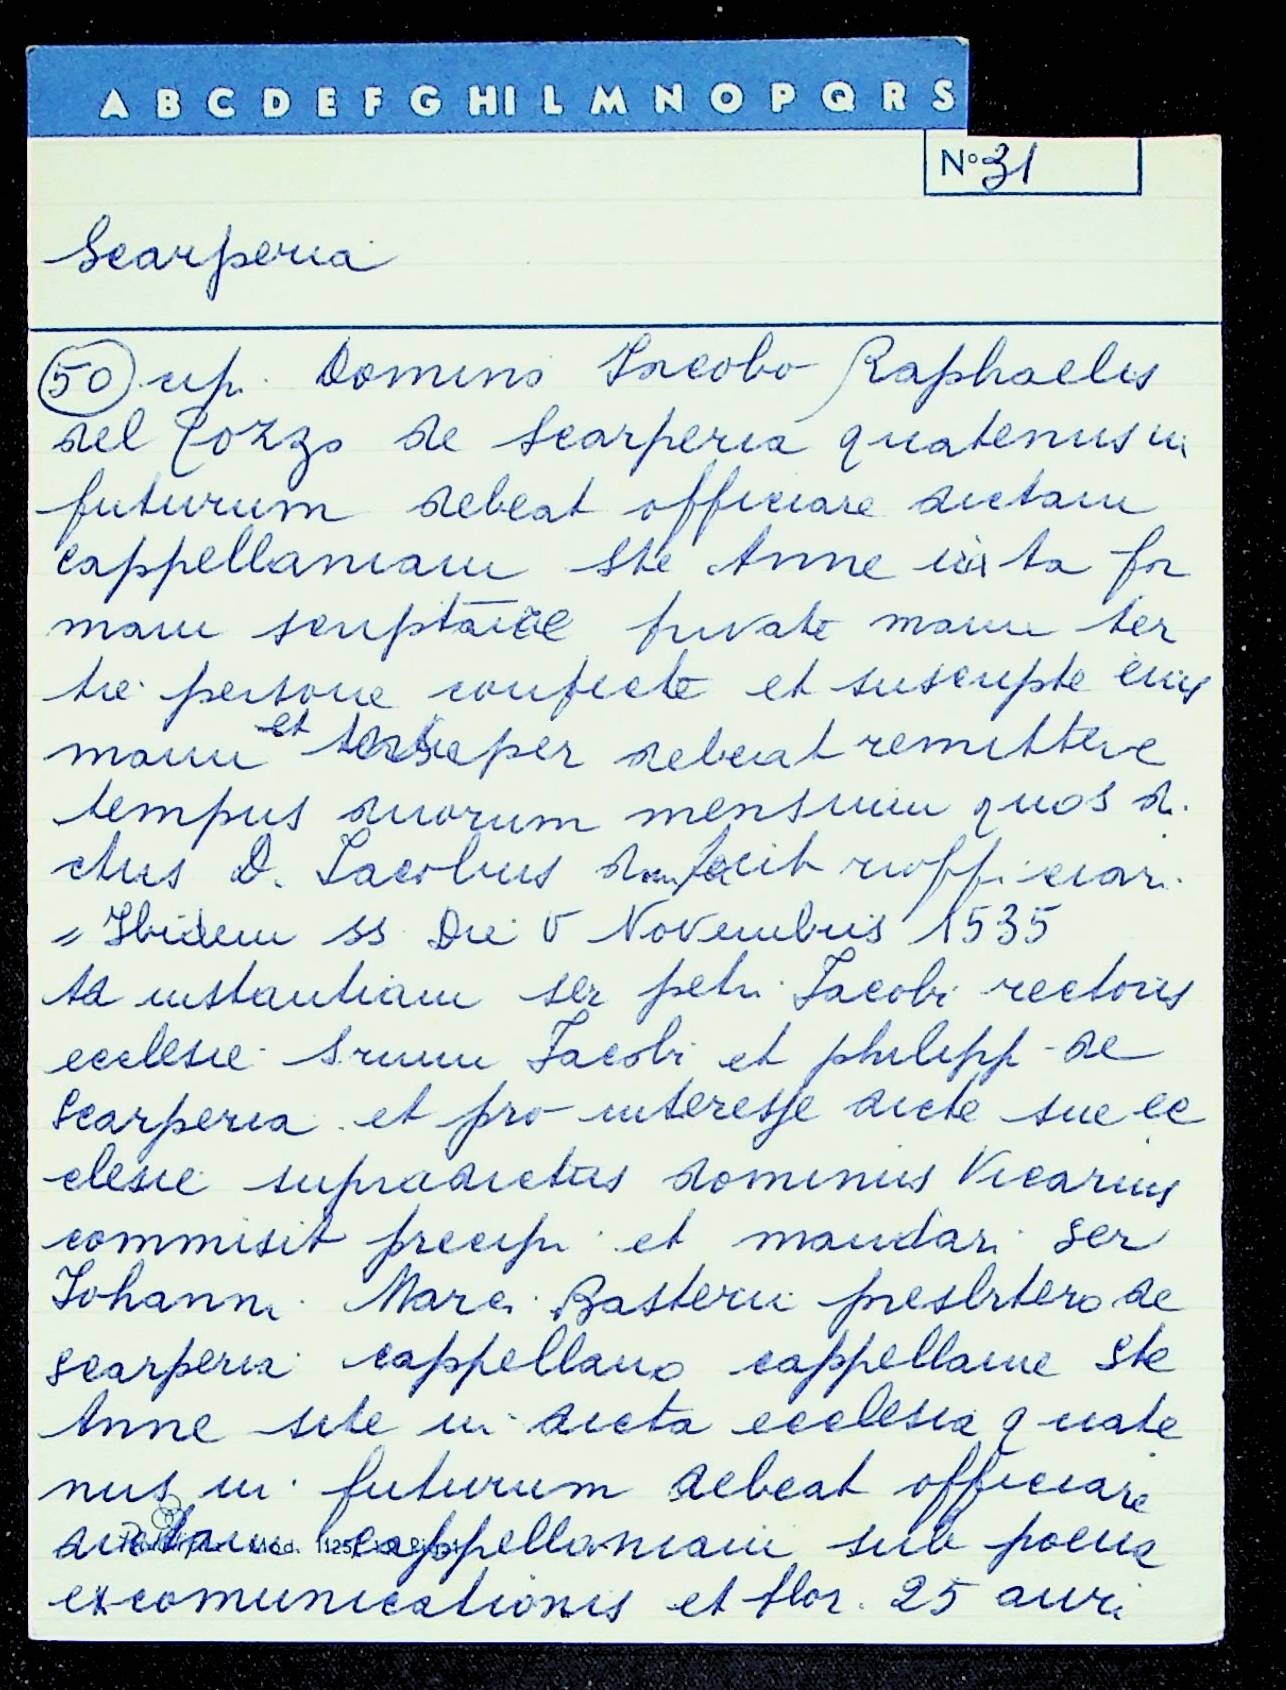 A B C D E F G HI L M N O P Q R S
N° 31
Scarperia
50 cip. Domino Iacobo Raphaelis
del Pozzo de Scarperia quatenus in
futurum debeat officiare dictam
cappellaniam Ste Anne iuxta for
mam scriptaice private manu ter
tie persone confecte et suscripte eius
manu et debeat remittere
tempus duorum mensium quos di
ctus D. Iacobus facit rioffi ciari
" Ibidem ss Die V Novembris 1535
Ad instantiam ser petri Iacobi rectoris
ecclesie Srum Iacobi et philipp de
Scarperia et pro interesse dicte sue ec
clesie supradictus dominus Vicarius
commisit precipi et mandari Ser
Iohanni Marci Basterii presbitero de
Scarperia cappellano cappellanie Ste
Anne site in dicta ecclesia quate
nus in futurum debeat officiare
dictam cappellaniam sub poena
excomunicationis et flor. 25 auri